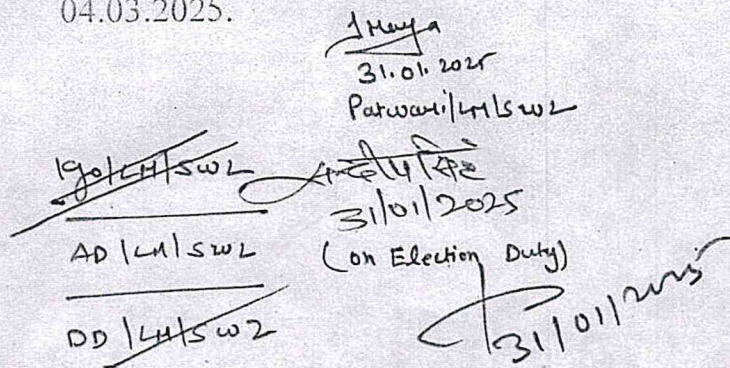 04.03.2025.
31.01.2025
Patwari/LM/SWZ
Kgo/LM/SWZ
संदीप सिंह
31/01/2025
AD/LM/SWZ
(on Election Duty)
DD/LM/SWZ
31/01/2025